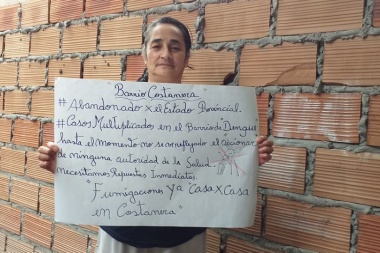 Barrio Costanera
#Abandonado x el Estado Provincial.
#Casos Multiplicados en el Barrio de "Dengue"
hasta el momento no se ve reflejado el accionar
de ninguna autoridad de la Salud
necesitamos Repuestas Inmediatas.
"Fumigaciones Ya "Casa x Casa
en Costanera"